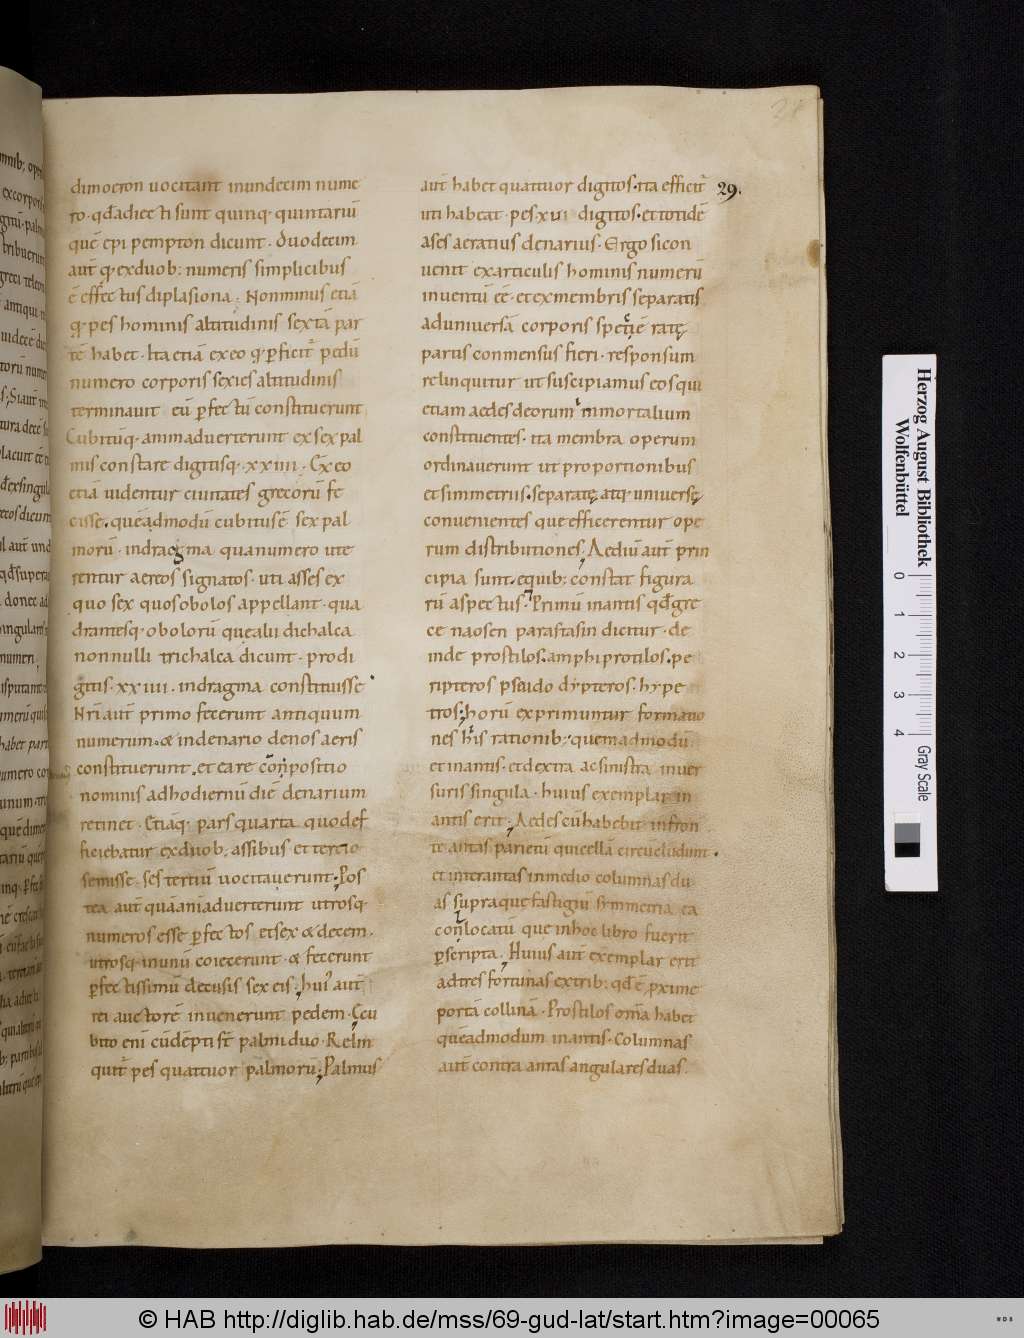 29.
dimoeron uocitant inundecim nume
ro · qd̄adiecti sunt quinq· quintariū
quē epi pempton dicunt · duodecim
aut̄ q· exduob; numeris simplicibus
ē effectus diplasiona; Nonminus etiā
q· pes hominis altitudinis sextā par
tē habet · Ita etiā exeo q· ꝑficit᷑ pedū
numero corporis sexies altitudinis
terminauit eū ꝑfectū constituerunt
Cubitūq· animaduerterunt exsex pal
mis constare digitisq· xxiiii · Ex eo
etiā uidentur ciuitates grecorū fe
cisse. quēadmodū cubitusē sex pal
morū · indragma quanumero ute
rentur aereos signatos · uti asses ex
quo sex quosobolos appellant · qua
drantesq· obolorū quealii dichalca
nonnulli trichalca dicunt · pro di
gitis · xxiiii · indragma constituisse
Nr̄i aut̄ primo fecerunt antiquum
numerum. & indenario denos aeris
constituerunt. et eare conpositio
nominis adhodiernū diē denarium
retinet · Etiāq· pars quarta quodef
ficiebatur exduob; assibus et tertio
semisse · sestertiū uocitauerunt; Pos
tea aut̄ quāaniaduerterunt utrosq·
numeros esse ꝑfectos etsex & decem.
utrosq· inunū coiecerunt · & fecerunt
ꝑfectissimū decusis sexeis; hui᷒ aut̄
rei auctorē inuenerunt pedem · E cu
bito enī cūdēpti st̄ palmi duo · Relin
quit᷑ pes quattuor palmorū; Palmus
aut̄ habet quattuor digitos · ita efficit᷑
uti habeat · pes · xui digitos · et totidē
ases aeratius denarius · Ergo si con
uenit exarticulis hominis numerū
inuentū eē · et exmembris separatis
aduniuersā corporis speciē ratę
partis conmensus fieri · responsum
relinquitur ut suscipiamus eos qui
etiam aedes deorum inmortalium
constituentes · ita membra operum
ordinauerunt ut proportionibus
et simmetriis · separatę atq· uniuersę
conuenientes que efficerentur ope
rum distributiones; Aediū aut̄ prin
cipia sunt. equib; constat figura
rū aspectus · Primū inantis qd̄ gre
ce naosen parastasin dicitur · de
inde prostilos. amphiprotilos. pe
ripteros pseudo dypteros. hype
tros; horū exprimuntur formatio
nes his rationib; quemadmodū
et inantis · et dextra ac sinistra inuer
suris singula · huius exemplar in
antis erit; Aedes cū habebit infron
te antas parietū quicellā circūcludunt.
et interantas inmedio columnas du
as supraque fastigiū symmetria ea
conlocatū que inhoc libro fuerit
ꝑscripta; Huius aut̄ exemplar erit
adtres fortunas extrib; qd̄ē ꝓxime
portā collinā · Prostilos om̄a habet
quēadmodum inantis · Columnas
aut̄ contra antas angulares duas ·
Herzog August Bibliothek
Wolfenbüttel
0 1 2 3 4
Gray Scale
© HAB http://diglib.hab.de/mss/69-gud-lat/start.htm?image=00065